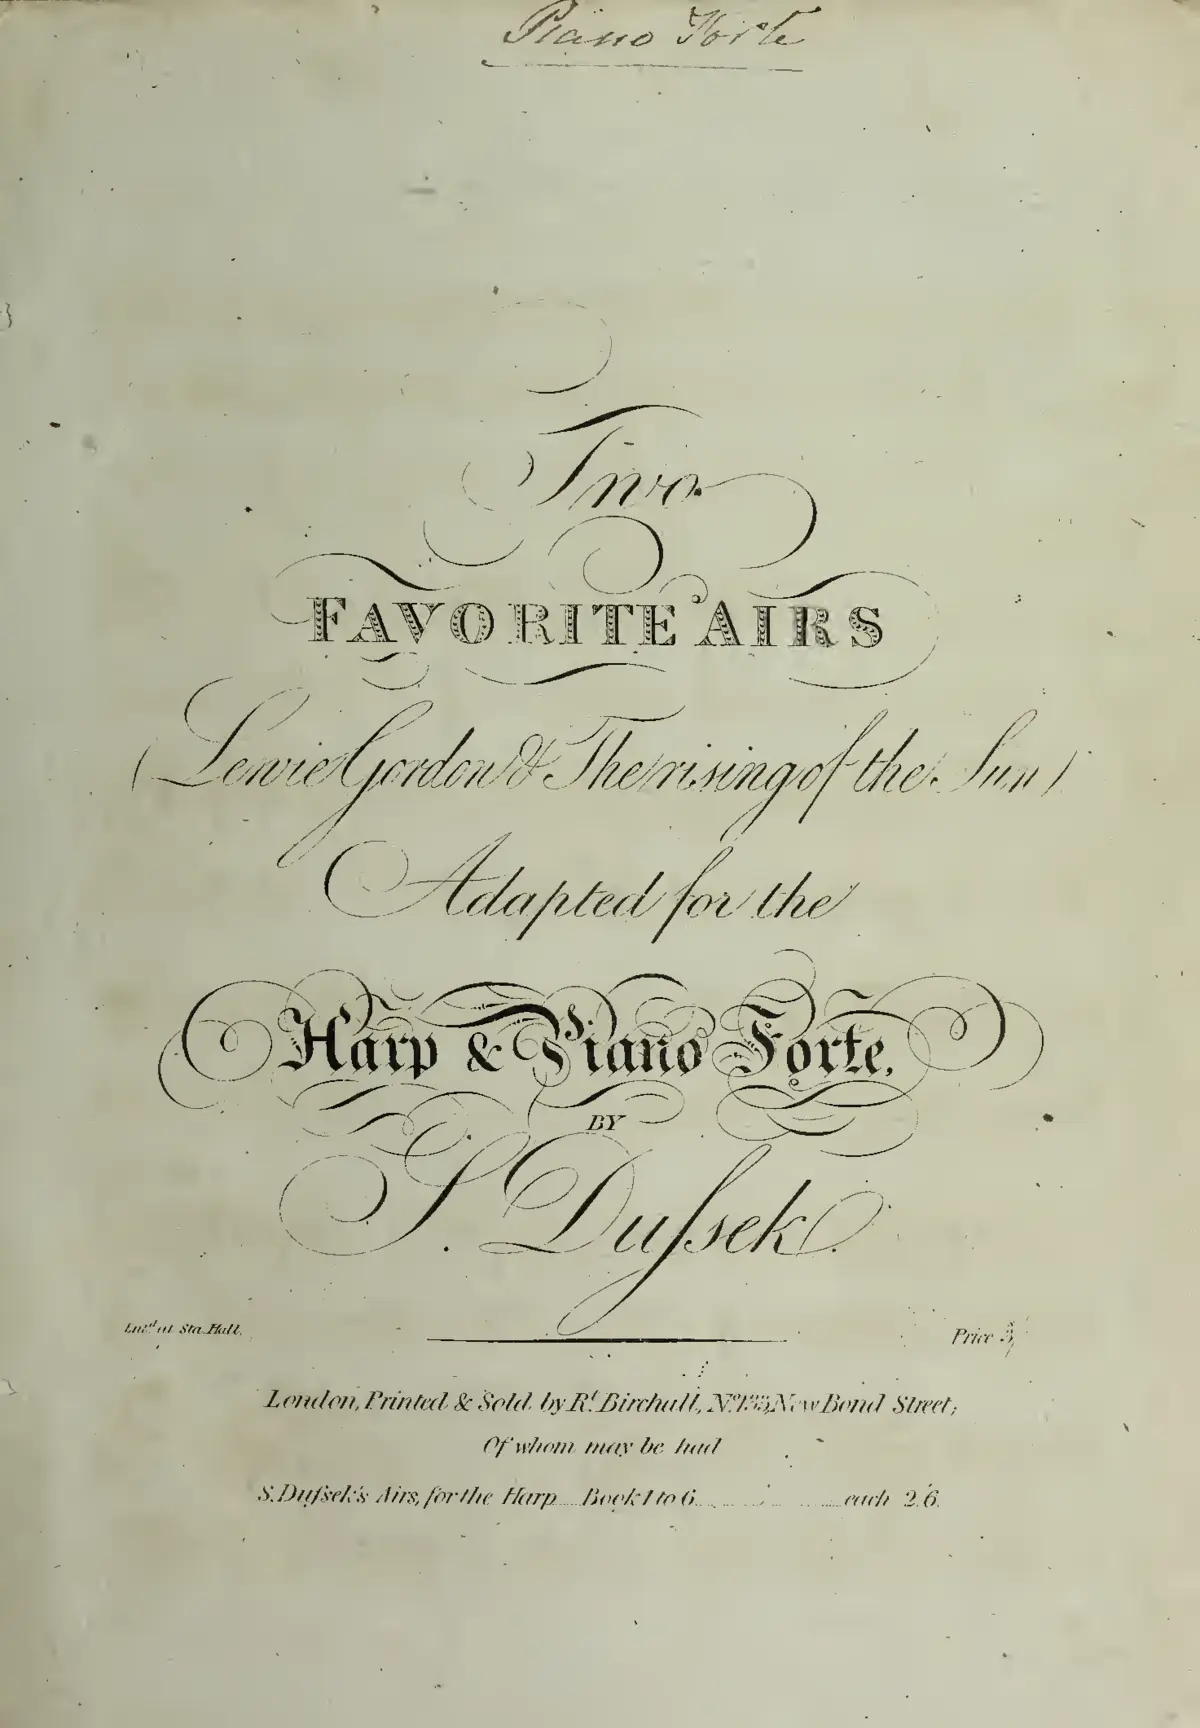 Piano Forte
Two
FAVORITE AIRS
(Lewie Gordon & The rising of the Sun)
Adapted for the
Harp & Piano Forte,
BY
S. Dufsek.
Ent.d at Sta. Hall.
Price 3/
London, Printed & Sold by R.t Birchall, No. 133, New Bond Street;
Of whom may be had
S. Dufsek's Airs, for the Harp Book 1 to 6 each 2/6.